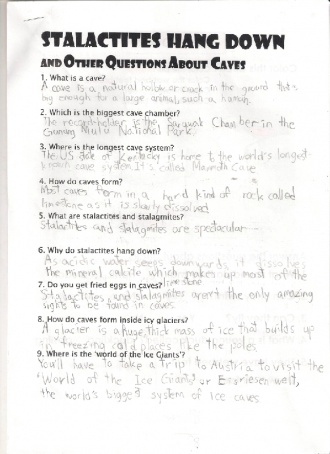 STALACTITES HANG DOWN
AND OTHER QUESTIONS ABOUT CAVES
1. What is a cave?
A cave is a natural hole or crack in the ground that's
big enough for a large animal, such a human.
2. Which is the biggest cave chamber?
The record holder is the Sarawak Chamber in the
Gunung Mulu National Park.
3. Where is the longest cave system?
The US state of Kentucky is home t the world's longest
known cave system. It's called Mammoth Cave
4. How do caves form?
Most caves form in a hard kind of rock called
limestone as it is slowly dissolved
5. What are stalactites and stalagmites?
Stalactites and stalagmites are spectacular
6. Why do stalactites hang down?
As acidic water seeps downwards it dissolves
the mineral calcite which makes up most of the
limestone
7. Do you get fried eggs in caves?
Stalactites and stalagmites aren't the only amazing
sights to be found in caves.
8. How do caves form inside icy glaciers?
A glacier is a huge, thick mass of ice that builds up
in freezing cold places like the poles
9. Where is the 'world of the Ice Giants'?
You'll have to take a Trip to Austria to visit the
'World of the Ice Giants' or Eisriesenwelt,
the world's biggest system of ice caves